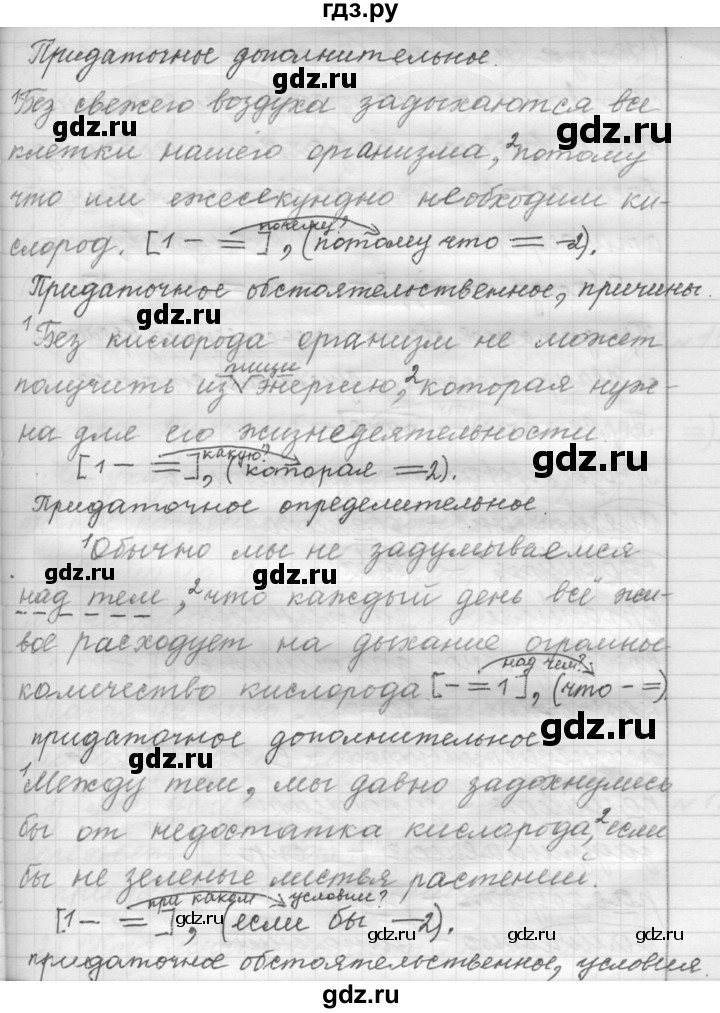 гдз.ру
Придаточное дополнительное.
¹Без свежего воздуха задыхаются все
gdz.ru gdz.ru
клетки нашего организма, ²потому
что им ежесекундно необходим ки-
слород. [1 – = ], (потому что = –2).
почему?
gdz.ru gdz.ru
Придаточное обстоятельственное, причины.
gdz.ru
¹Без кислорода организм не может
получить из √ энергию, ²которая нуж-
пищи
gdz.ru gdz.ru
на для его жизнедеятельности.
[1 – = ], (которая = 2).
какую?
gdz.ru
Придаточное определительное.
¹Обычно мы не задумываемся
gdz.ru gdz.ru gdz.ru
над тем, ²что каждый день всё жи-
вое расходует на дыхание огромное
gdz.ru
количество кислорода [– = 1], (что – =).
над чем?
gdz.ru
придаточное дополнительное
gdz.ru gdz.ru
¹Между тем, мы давно задохнулись
бы от недостатка кислорода, ²если
gdz.ru gdz.ru
бы не зеленые листья растений.
[1 – = ], (если бы –2).
при каком условии?
gdz.ru gdz.ru gdz.ru gdz.ru
придаточное обстоятельственное, условия.
gdz.ru